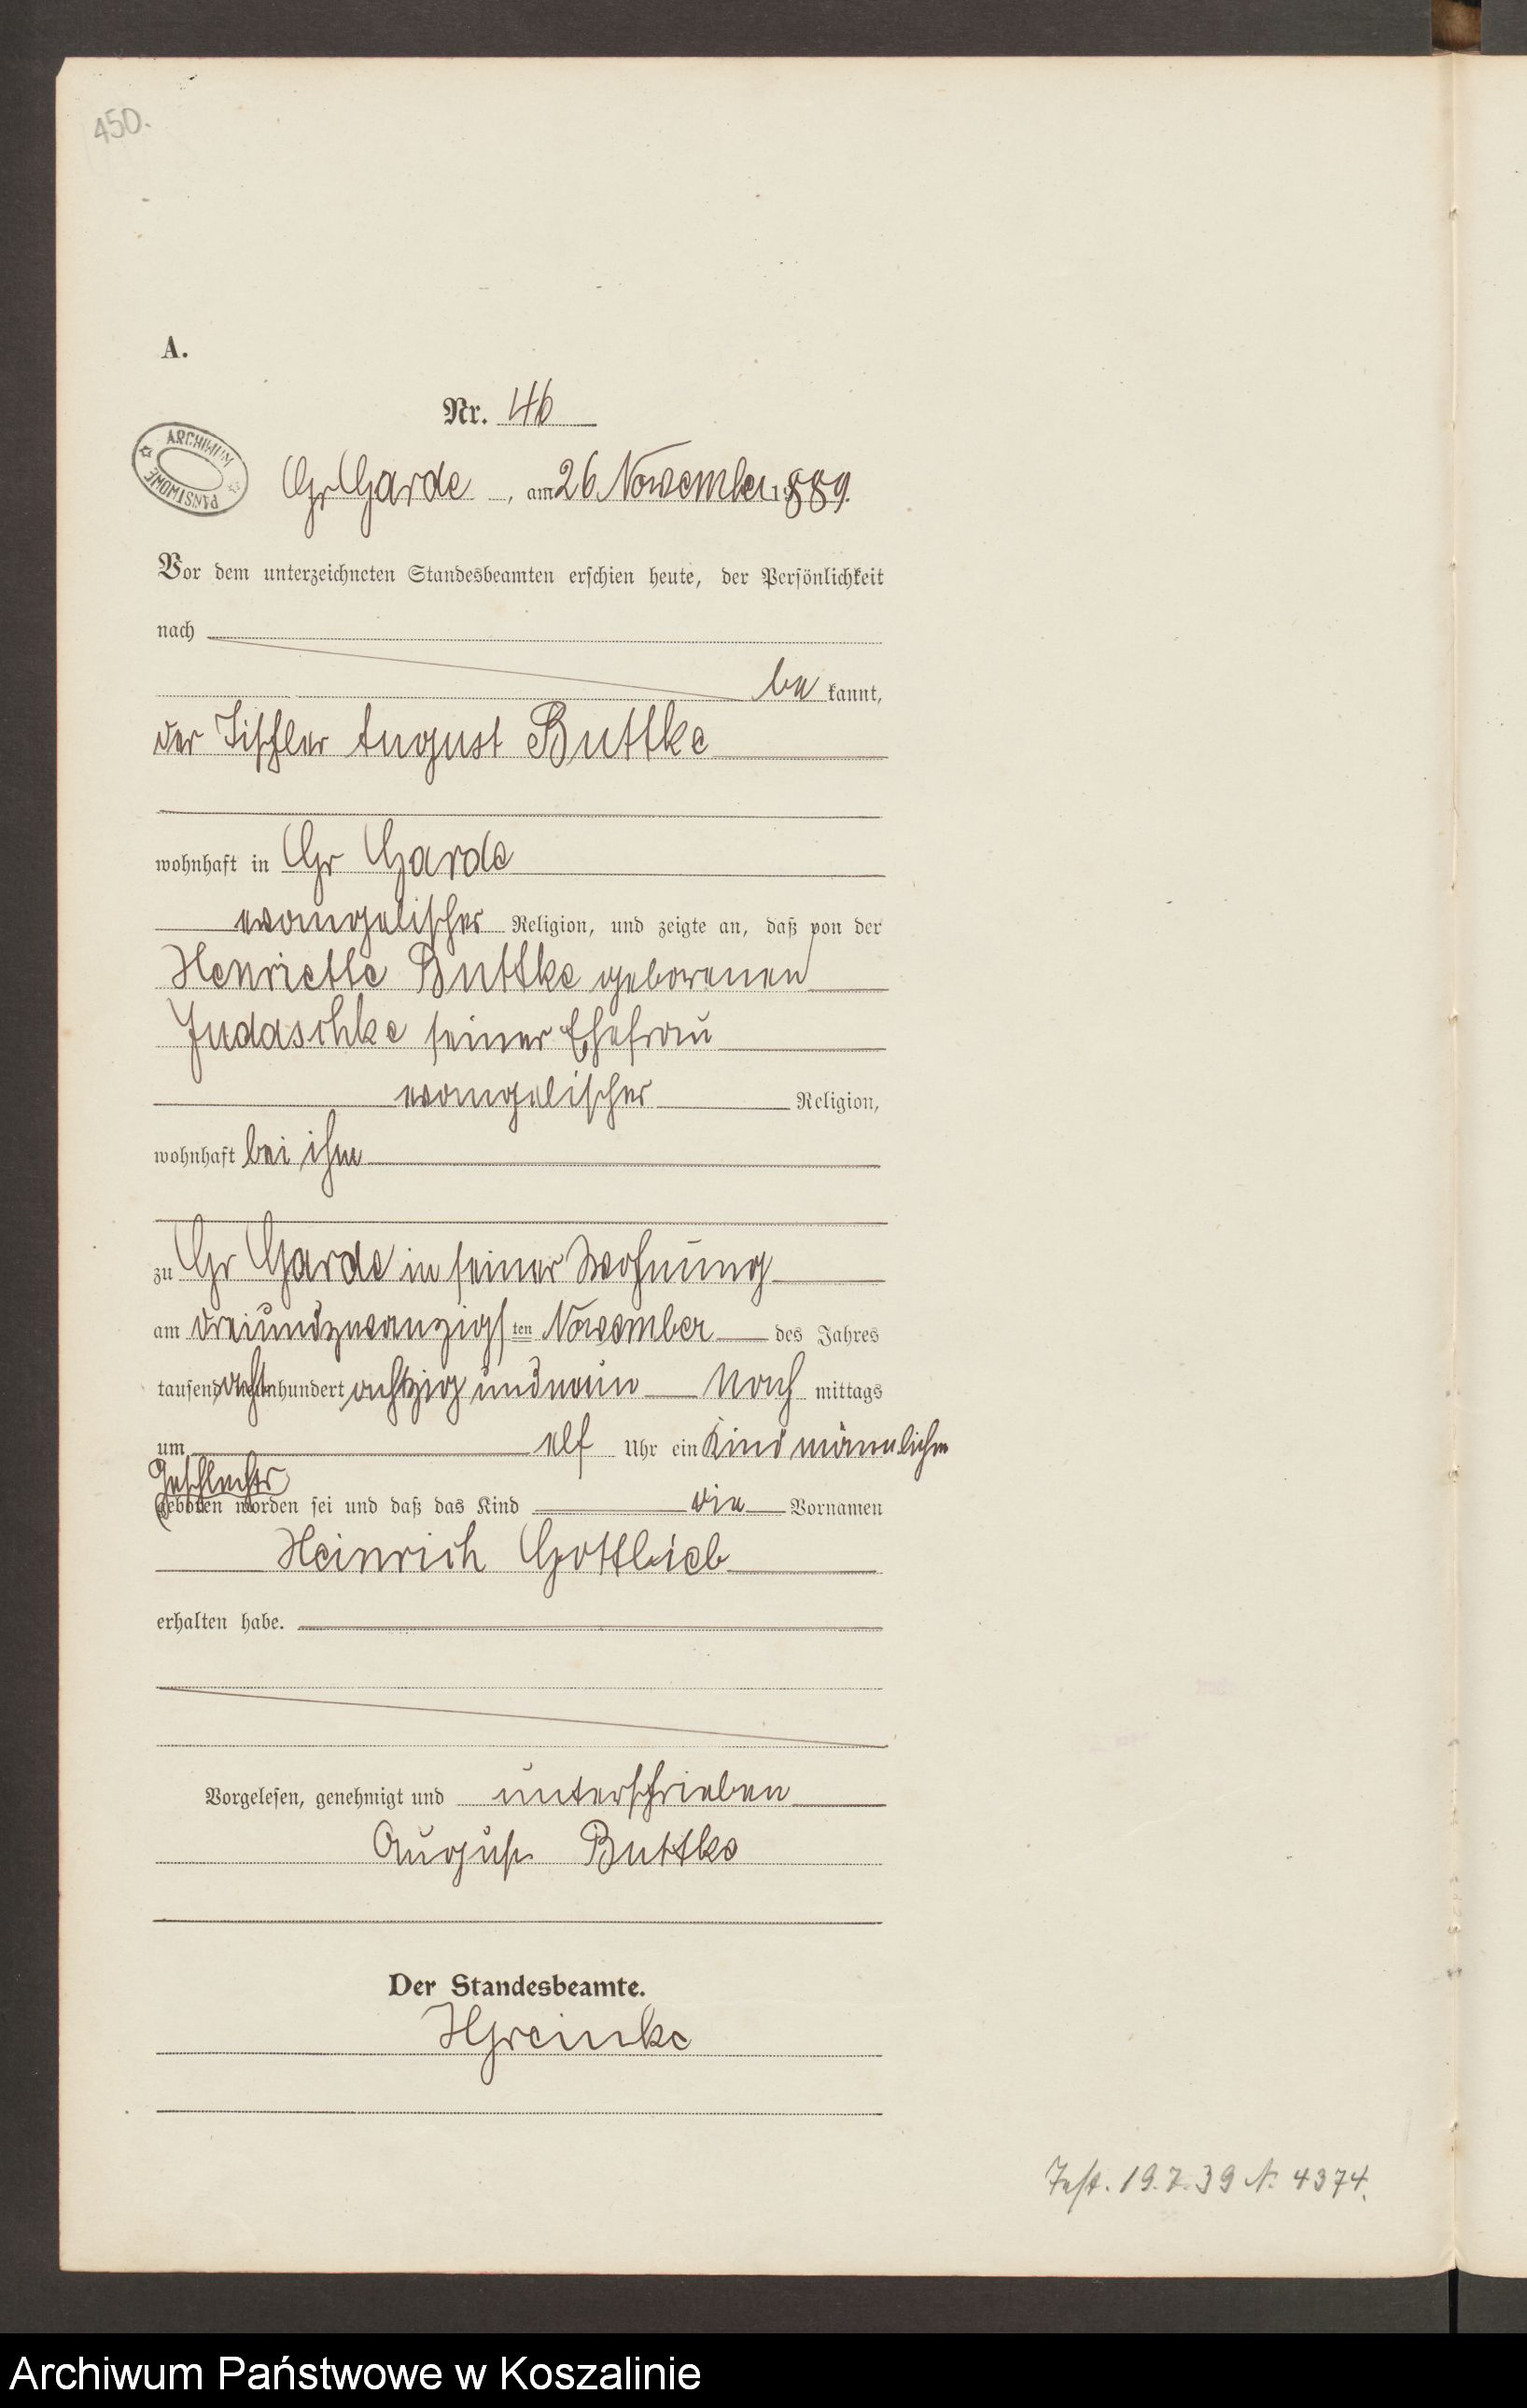 450.
A.
Nr. 46
ARCHIWUM PAŃSTWOWE
Gr Garde, am 26 November 1889.
Vor dem unterzeichneten Standesbeamten erschien heute, der Persönlichkeit
nach
be kannt,
der Tischler August Buttke
wohnhaft in Gr Garde
evangelischer Religion, und zeigte an, daß von der
Henriette Buttke geborenen
Judaschke seiner Ehefrau
evangelischer Religion,
wohnhaft bei ihm
zu Gr Garde in seiner Wohnung
am dreiundzwanzigsten November des Jahres
tausend acht hundert achtzig und neun Nach mittags
um elf Uhr ein Kind männlichen
Geschlechts
geboren worden sei und daß das Kind die Vornamen
Heinrich Gottlieb
erhalten habe.
Vorgelesen, genehmigt und unterschrieben
August Buttke
Der Standesbeamte.
HGreinke
Test. 19.7.39 N. 4374.
Archiwum Państwowe w Koszalinie